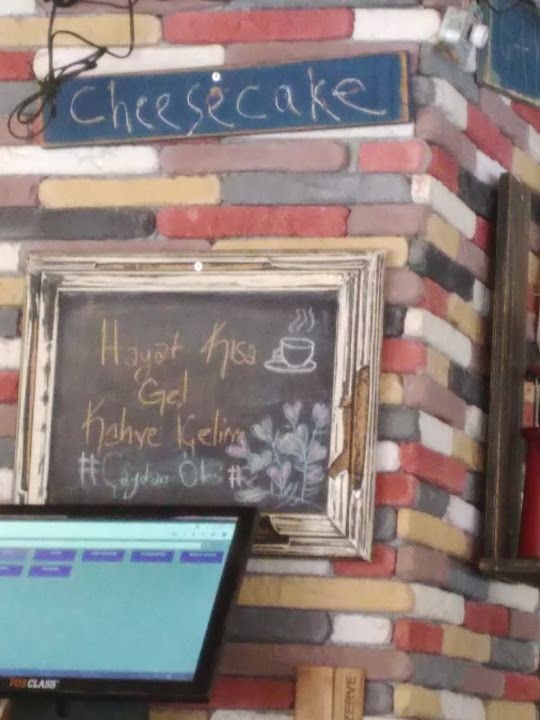 Cheesecake
Hayat Kısa
Gel
Kahve İçelim
#Çaydan Öte #
POSCLASS